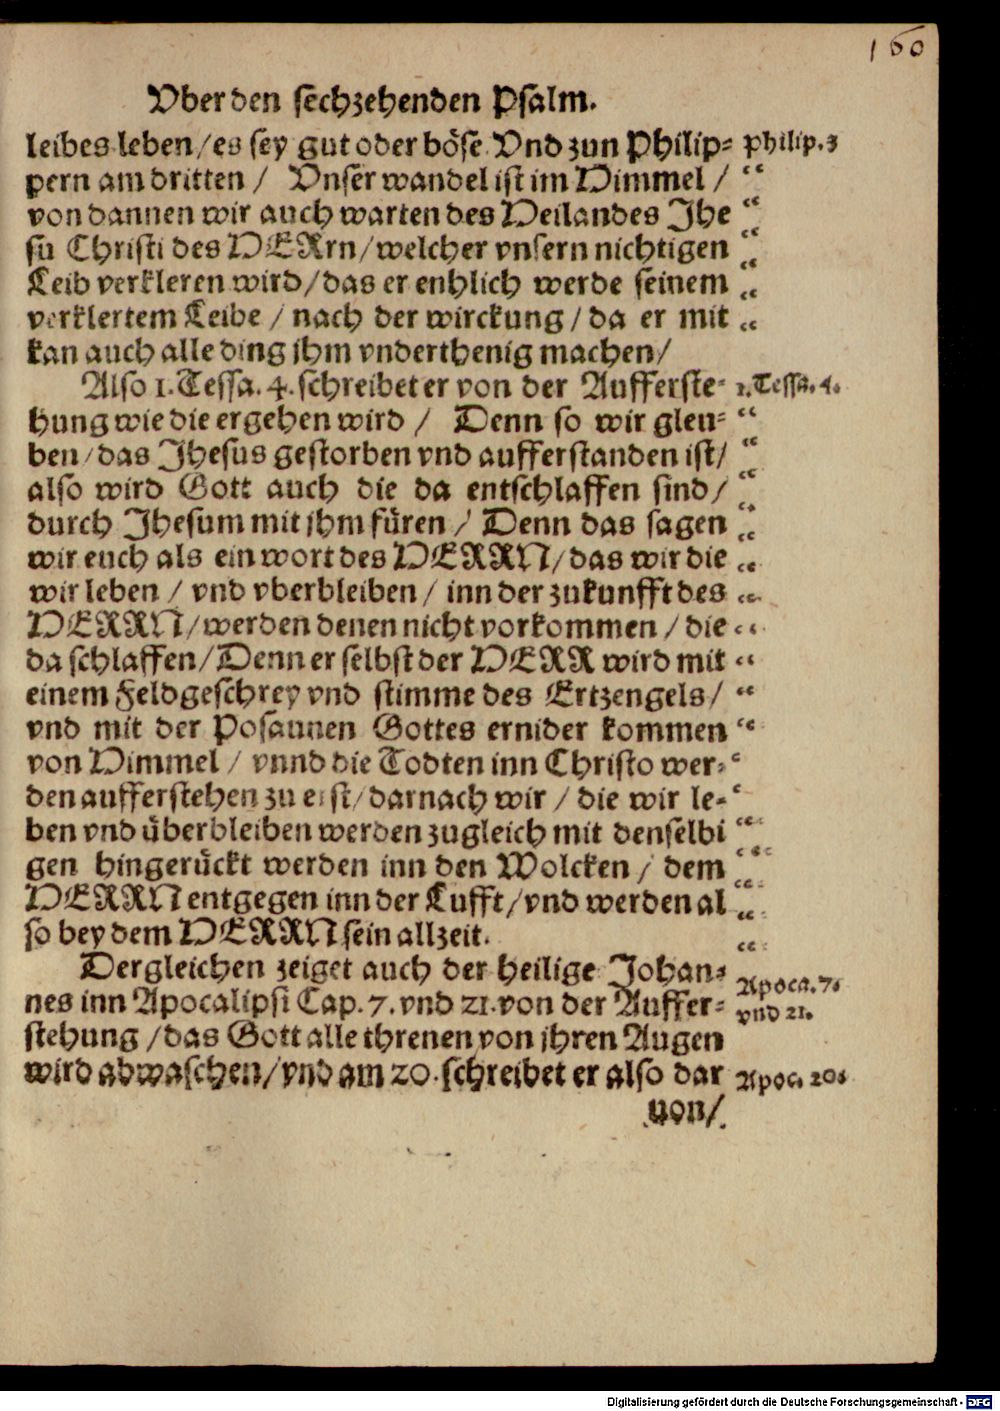 160
Vber den sechzehenden Psalm.
leibes leben/es sey gut oder böse. Vnd zun Philip= Philip. 3
pern am dritten / Vnser wandel ist im Himmel / “
von dannen wir auch warten des Heilandes Jhe “
su Christi des HERrn/welcher vnsern nichtigen “
Leib verkleren wird/das er enhlich werde seinem “
verklertem Leibe / nach der wirckung/da er mit “
kan auch alle ding jhm vnderthenig machen/
Also 1. Tessa. 4. schreibet er von der Aufferste= 1. Tessa. 4.
hung wie die ergehen wird / Denn so wir gleu= “
ben/das Jhesus gestorben vnd aufferstanden ist/ “
also wird Gott auch die da entschlaffen sind/ “
durch Jhesum mit jhm füren / Denn das sagen “
wir euch als ein wort des HERRN/das wir die “
wir leben / vnd vberbleiben / inn der zukunfft des “
HERRN/werden denen nicht vorkommen / die “
da schlaffen/Denn er selbst der HERR wird mit “
einem Feldgeschrey vnd stimme des Ertzengels/ “
vnd mit der Posaunen Gottes ernider kommen “
von Himmel / vnnd die Todten inn Christo wer= “
den aufferstehen zu erst/darnach wir / die wir le= “
ben vnd überbleiben werden zugleich mit denselbi “
gen hingerückt werden inn den Wolcken / dem “
HERRN entgegen inn der Lufft/vnd werden al “
so bey dem HERRN sein allzeit. “
Dergleichen zeiget auch der heilige Johan= Apoca. 7.
nes inn Apocalipsi Cap. 7. vnd 21. von der Auffer= vnd 21.
stehung /das Gott alle threnen von jhren Augen
wird abwaschen/vnd am 20. schreibet er also dar Apoc. 20.
uon/
Digitalisierung gefördert durch die Deutsche Forschungsgemeinschaft - DFG